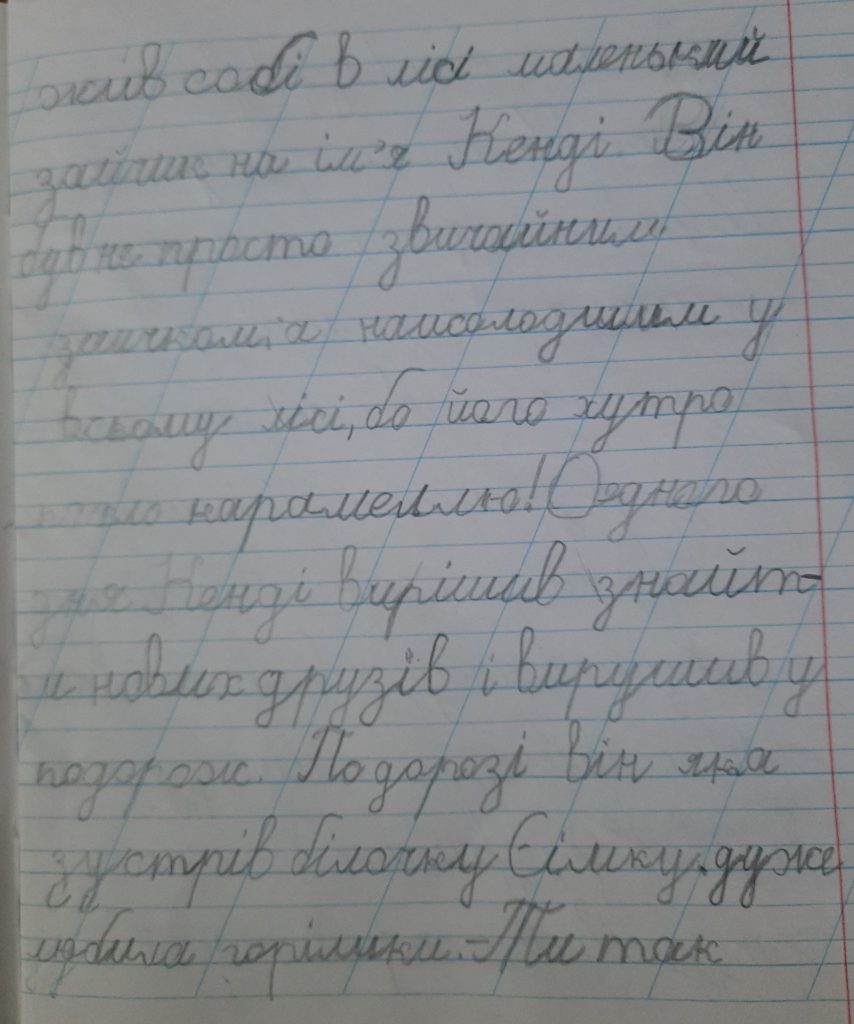 жив собі в лісі маленький
зайчик на ім'я Кенді. Він
був не просто звичайним
зайчком, а найсолодшим у
всьому лісі, бо його хутро
карамеллю! Одного
дня Кенді вирішив знайт-
и нових друзів і вирушив у
подорож. По дорозі він яка
зустрів білочку Єілку. дуже
любила горішки. - Ти так